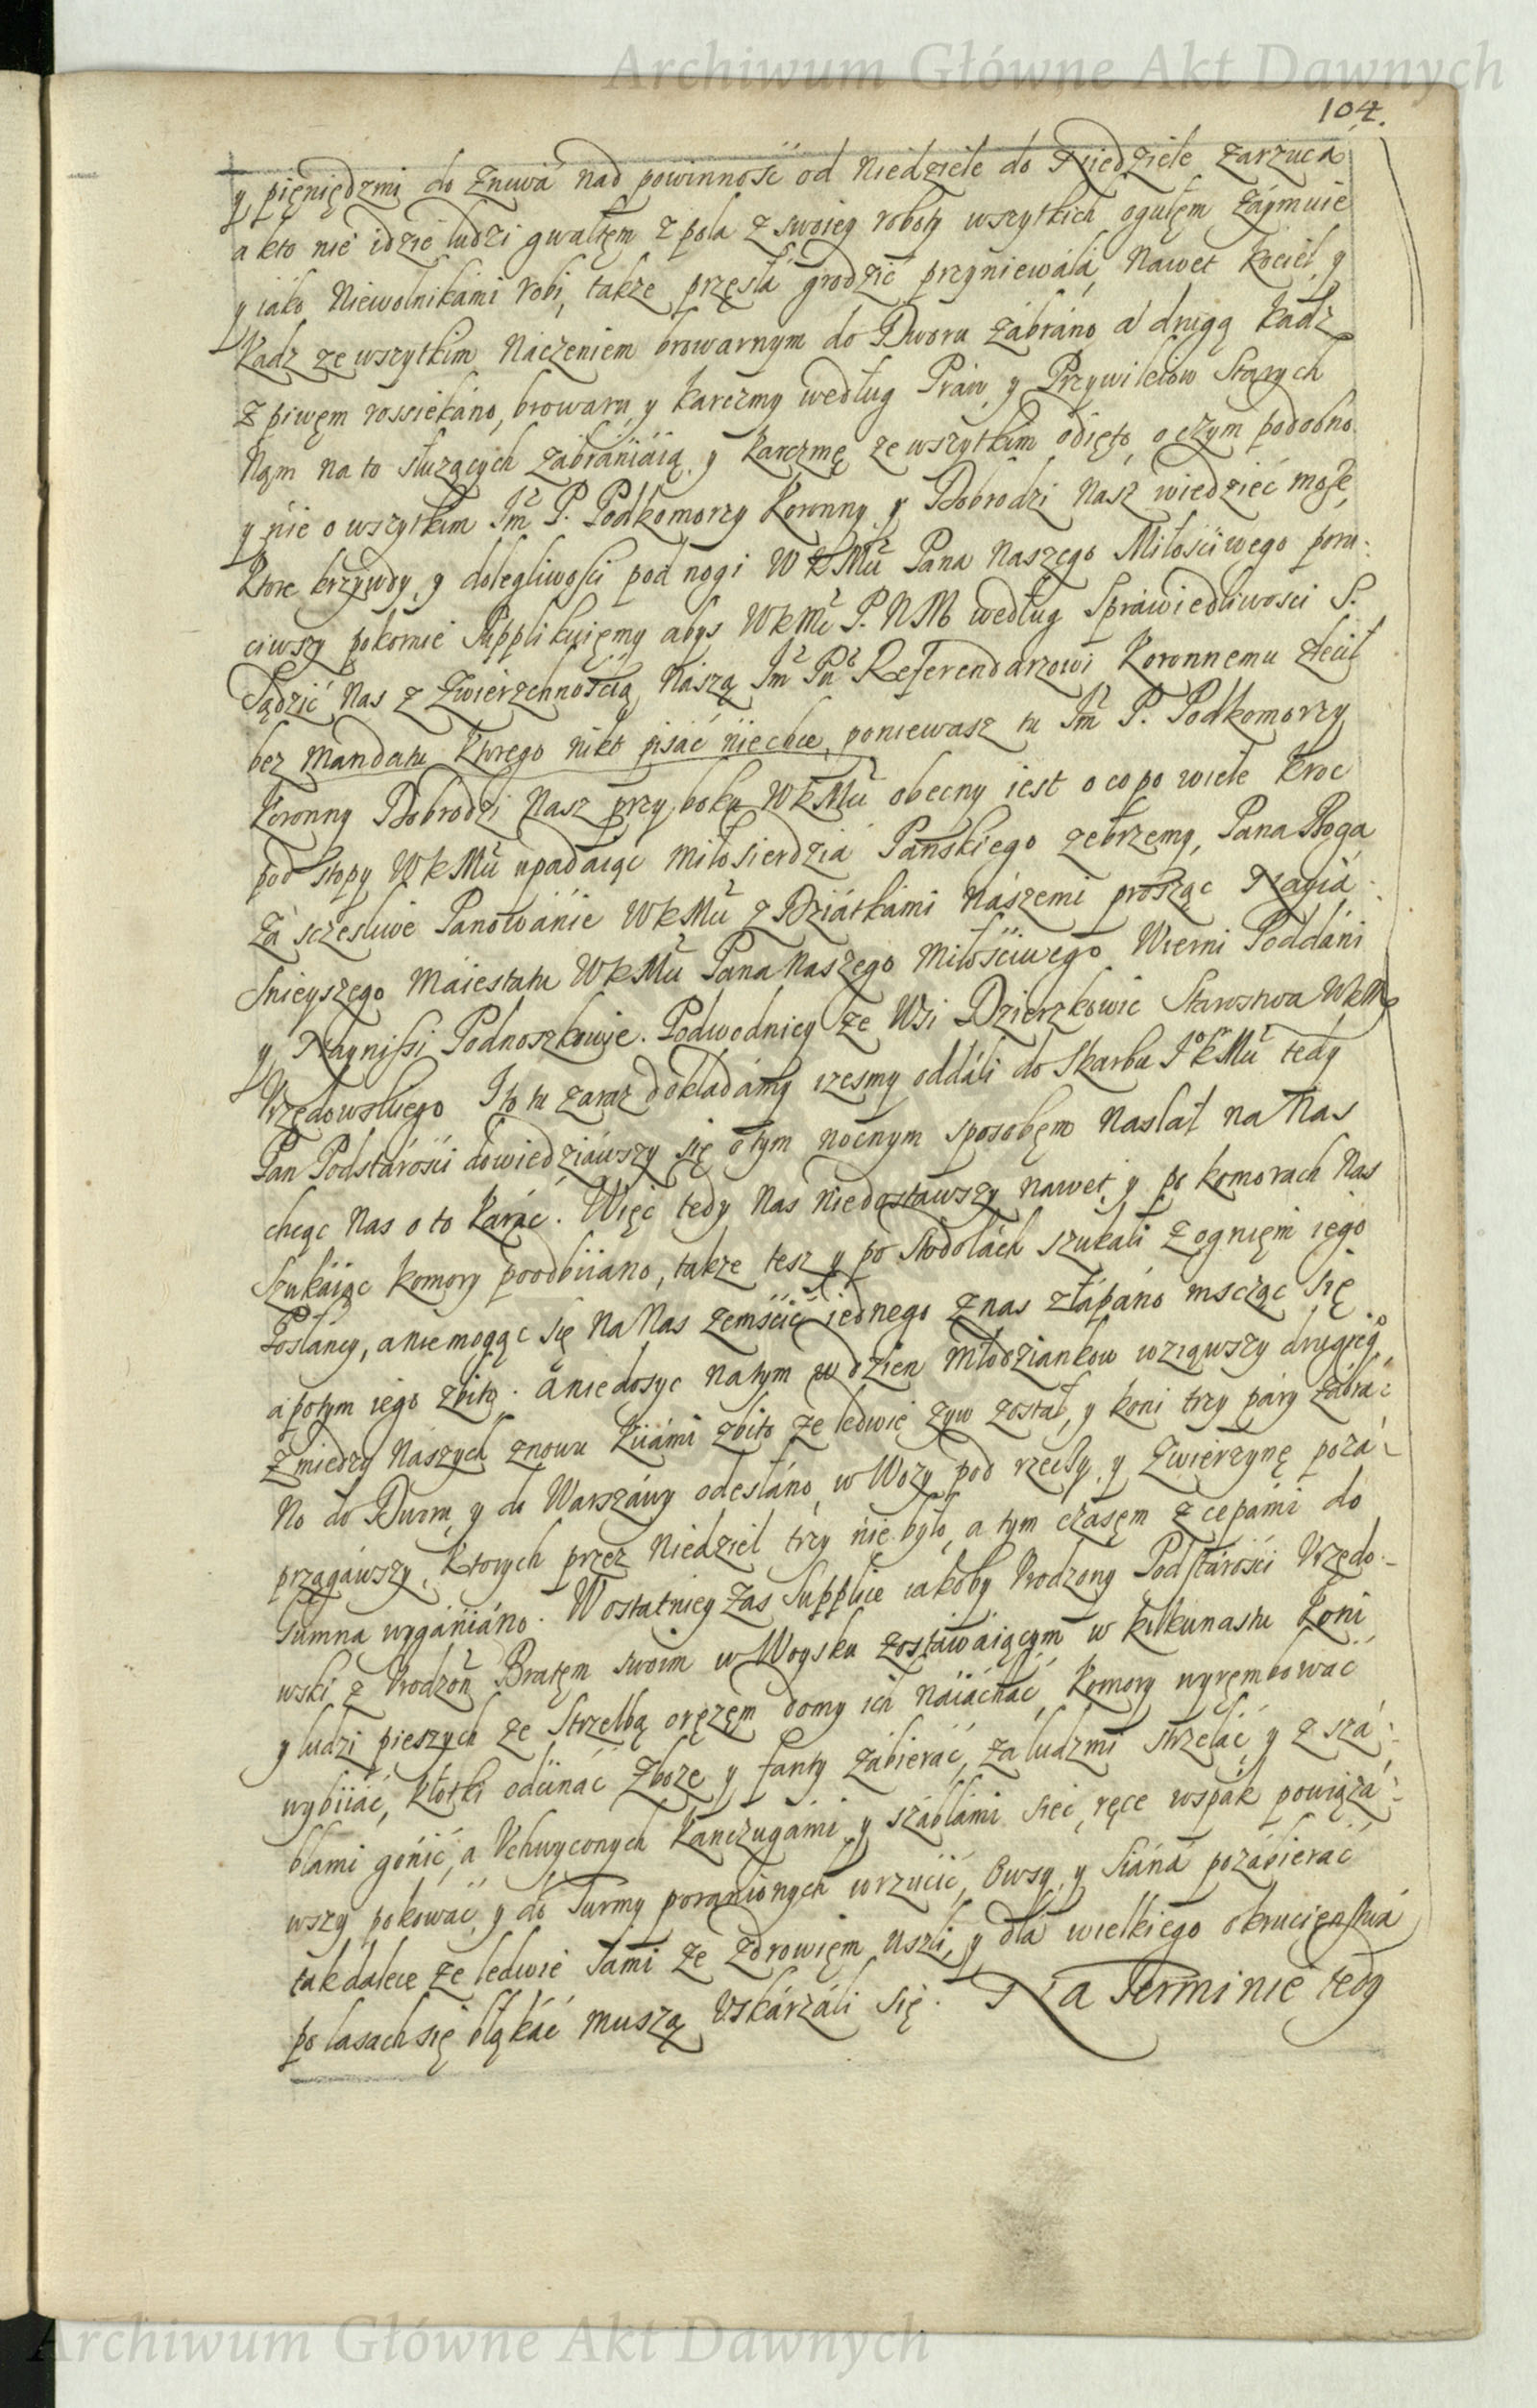 Archiwum Główne Akt Dawnych
104.
y pieniędzmi do Zniwá nad powinność od Niedziele do Niedziele zarzucá
a kto nie idzie ludzi gwałtęm z pola z swoiey roboty wszytkich ogułęm záymuie
y iáko Niewolnikámi robi, także przęsłá grodzić przyniewálá, Nawet Kocieł y
Kadz ze wszytkim Naczeniem browarnym do Dworu zábráno á drugą Kadz
z piwęm rossiekáno, browaru y Karczmy według Práw y Przywileiow Starych
Nąm na to służących zabrániáią y Karczmę ze wszytkim odięto, o czym podobno
y nie o wszytkim Jm̃ P. Podkomorzy Koronny y Dobrodzi Nasz wiedzieć może,
Ktore krzywdy y dolegliwości pod nogi W K Mći Pana Naszego Miłościwego porzu:
ciwszy pokornie Supplikuięmy abyś W K Mć P. N M według Spráwiedliwości S.
Sądzić Nas z Zwierzchnością Nászą Jm̃ Pñ Referendarzowi Koronnemu zlecił
bez Mandatu Ktorego nikt pisáć niechce, poniewasz tu Jm̃ P. Podkomorzy
Koronny Dobrodzi Nasz przy boku W K Mći obecny iest o co po wiele kroc
pod stopy W K Mći upadaiąc miłosierdziá Pańskiego żebrzemy, Pana Boga
zá sczesliwe Panowánie W K Mći z Dziátkámi Nászemi prosząc Nayiá:
śnieyszego Máiestatu W K Mći Pana Naszego Miłościwego Wierni Poddáni
y Nayniśsi Podnoszkowie. Podwodnicy ze Wsi Dzierzkowic Starostwa W K M
Vrzędowskiego I to tu zaraz dokładámy iżesmy oddáli do Skarbu J K Mći tedy
Pan Podstárości dowiedziáwszy się o tym nocnym sposobęm nasłał na Nas
chcąc Nas o to káráć. Więc tedy Nas niedostawszy nawet y po komorach Nas
Szukáiąc komory poodbiiano, także tesz y po Stodołách szukali z ognięm iego
Posłáncy, a niemogąc się na Nas zemścić iednego z nas złápáno mscząc się
á potym iego zbito. á niedosyc na tym w dzien Młodziankow wziąwszy drugiego
z miedzy Nászych znowu Kiiámi zbito że ledwie zyw został, y koni trzy páry zábrá:
No do Dwora y do Warszáwy odesłáno, w Wozy pod rzeczy y Zwierzynę pozá:
przągáwszy, Ktorych przez Niedziel trzy nie było, a tym czásęm z cepámi do
Gumna wygániáno. W ostatniey zas Supplice iakoby Vrodzony Podstárości Vrzędo-
wski z Vrodzoñ Bratęm swoim w Woysku zostáwáiącym w kilkunastu koni
y ludzi pieszych ze Strzelbą orężęm domy ich náiácháć, Komory wyrębować
wybiiáć, kłotki odcináć zboże y fanty zábieráć, za ludzmi strzeláć y z szá:
blami gonić, a Vchwyconych Kanczugámi y száblámi sieć, ręce wspák powiązá:
wszy pokować y do Turmy poranionych wrzucić, Owsy, y Siáná pozábieráć
tak dalece że ledwie sami ze zdrowięm uszli, y dla wielkiego okrucięństwá
po lasach się błąkáć muszą Vskárżáli się. Na Terminie tedy
Archiwum Główne Akt Dawnych